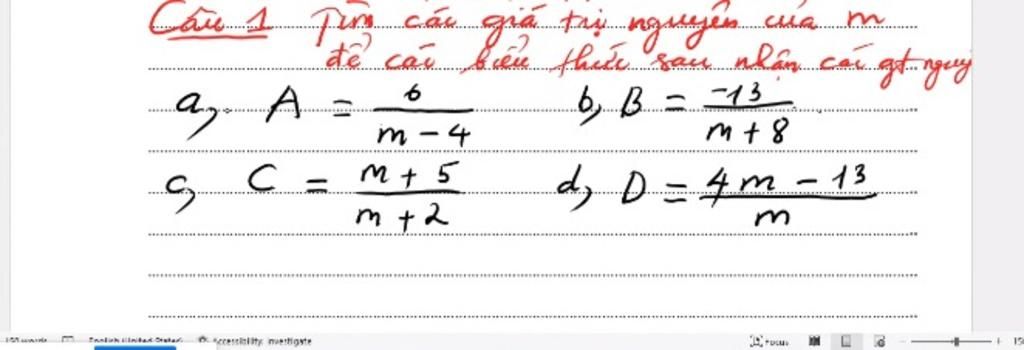 Câu 1 Tìm các giá trị nguyên của m
để các biểu thức sau nhận các gt nguy
a, A = 6/(m - 4) b, B = -13/(m + 8)
c, C = (m + 5)/(m + 2) d, D = (4m - 13)/m
English (United States) Accessibility: Investigate Focus